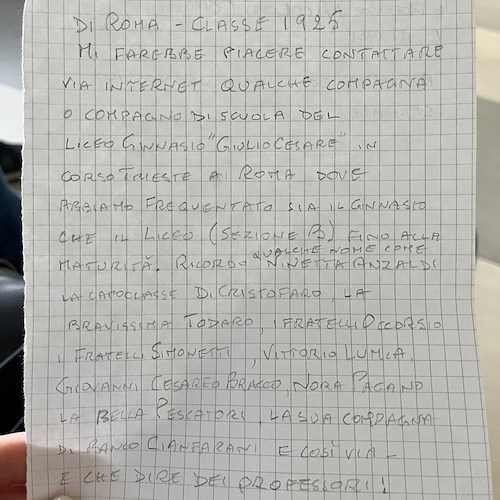 DI ROMA - CLASSE 1925
MI FAREBBE PIACERE CONTATTARE
VIA INTERNET QUALCHE COMPAGNA
O COMPAGNO DI SCUOLA DEL
LICEO GINNASIO "GIULIO CESARE" IN
CORSO TRIESTE A ROMA DOVE
ABBIAMO FREQUENTATO SIA IL GINNASIO
CHE IL LICEO (SEZIONE B) FINO ALLA
MATURITÀ. RICORDO QUALCHE NOME COME
NINETTA ANZALDI
LA CAPOCLASSE DI CRISTOFARO, LA
BRAVISSIMA TODARO, I FRATELLI OCCORSIO
I FRATELLI SIMONETTI, VITTORIO LUMIA,
GIOVANNI CESAREO BRACCO, NORA PAGANO
LA BELLA PESCATORI, LA SUA COMPAGNA
DI BANCO CIANFARANI E COSÌ VIA -
E CHE DIRE DEI PROFESSORI!